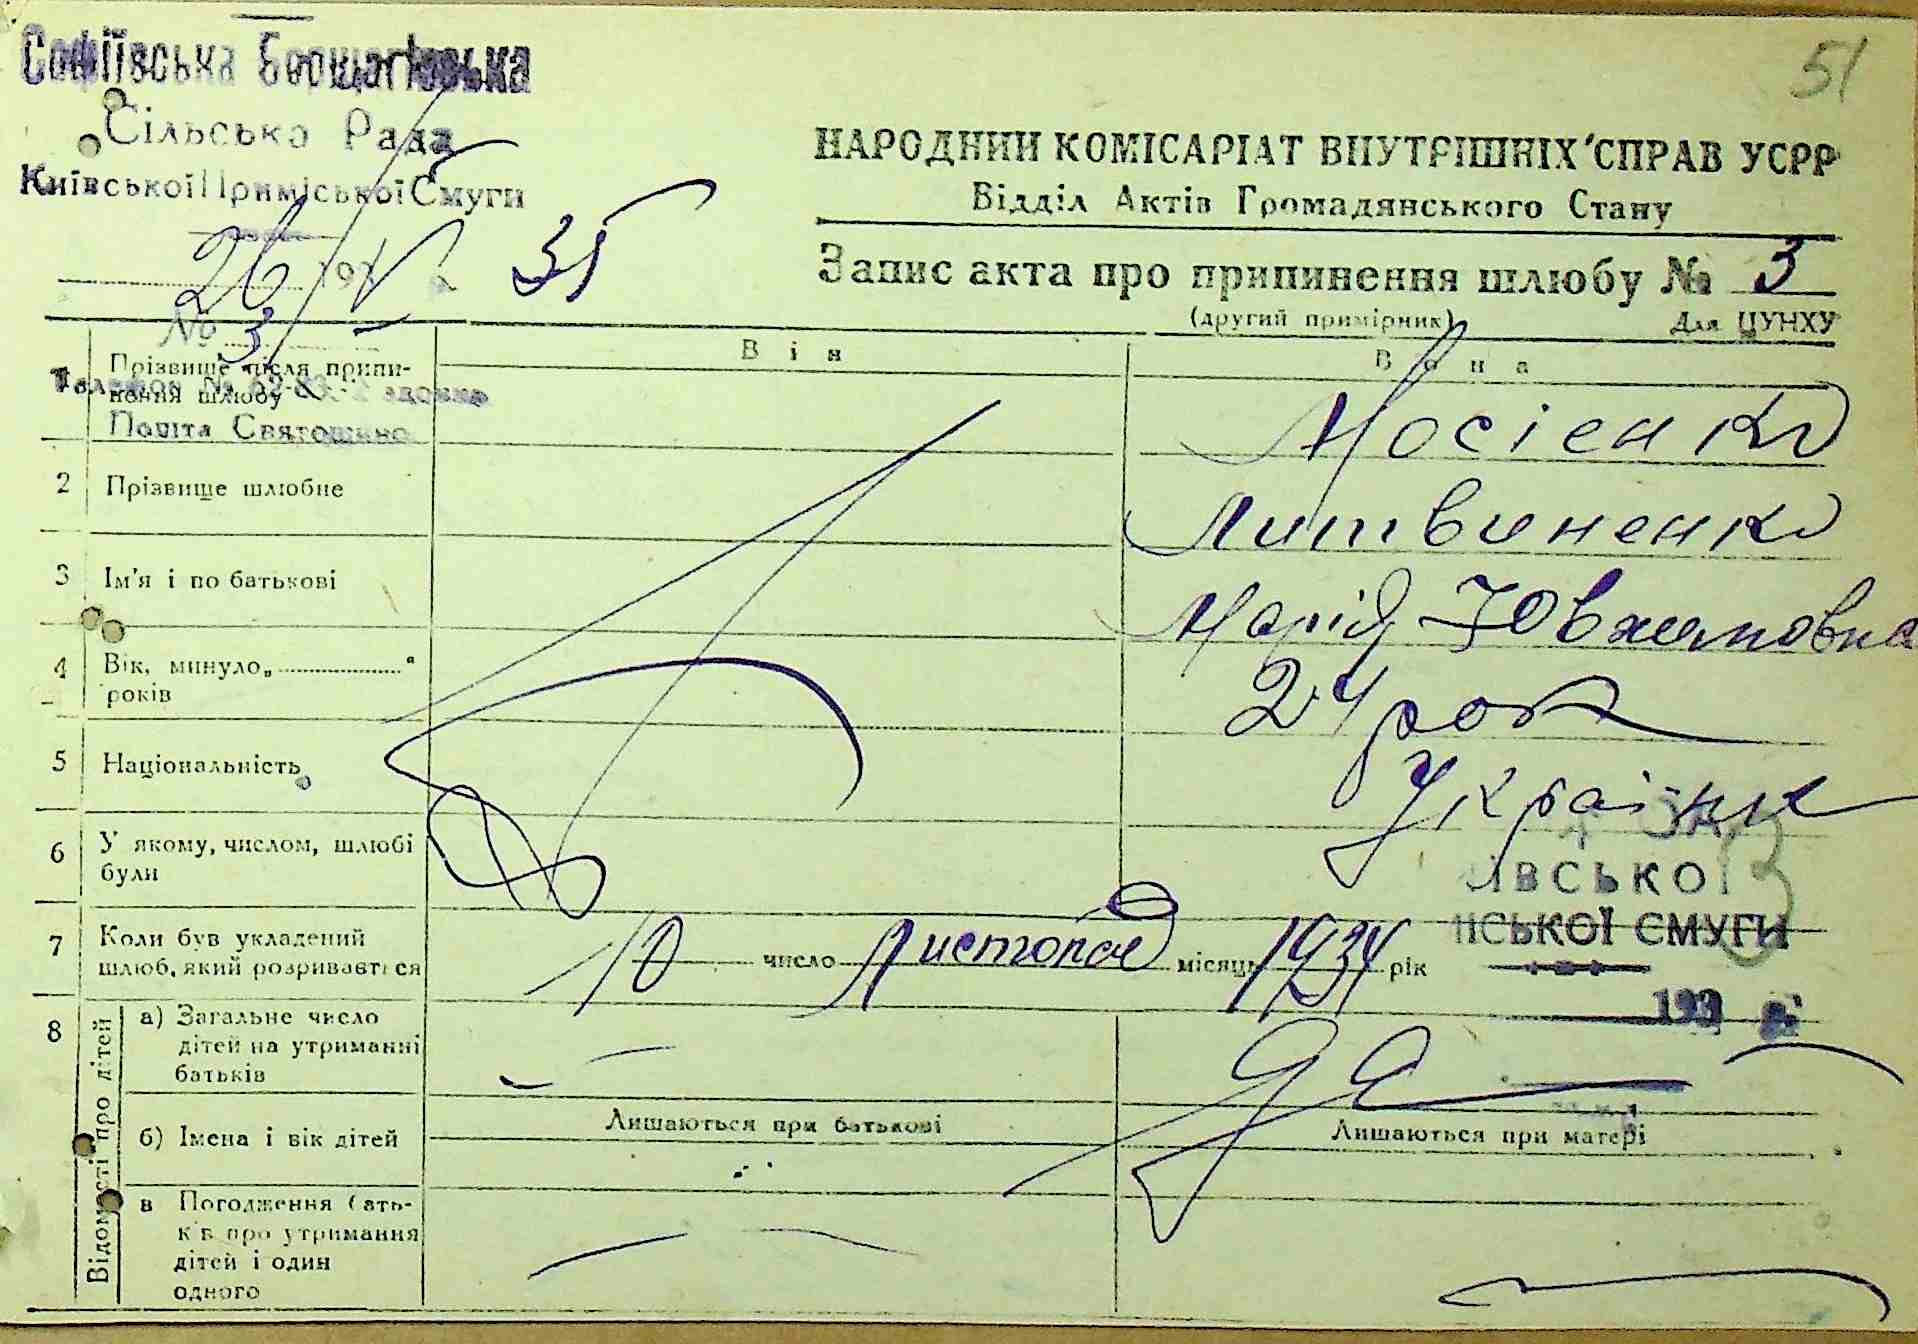 51
Софіївська Борщагівська
Сільська Рада
Київської Приміської Смуги
26/V 35
№ 3
Пошта Святошино
НАРОДНИЙ КОМІСАРІАТ ВНУТРІШНІХ СПРАВ УСРР
Відділ Актів Громадянського Стану
Запис акта про припинення шлюбу № 3
(другий примірник) Для ЦУНХУ
Він Вона
1 Прізвище після припи-
нення шлюбу Мосієнко
2 Прізвище шлюбне Литвиненко
3 Ім'я і по батькові Марія
4 Вік, минуло „ “
років 24 рок
5 Національність Українк
6 У якому, числом, шлюбі
були
ІВСЬКОЇ
ІСЬКОЇ СМУГИ
7 Коли був укладений
шлюб, який розривається 10 число Листопад місяць 1934 рік
193
8 Відомості про дітей
а) Загальне число
дітей на утриманні
батьків
б) Імена і вік дітей Лишаються при батькові Лишаються при матері
в Погодження бать-
ків про утримання
дітей і один
одного